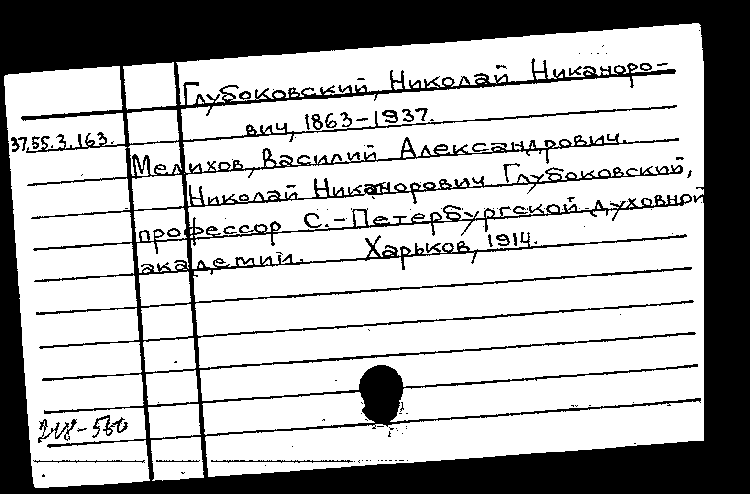 Глубоковский, Николай Никаноро-
вич, 1863-1937.
37,55.3.163.
Мелихов, Василий Александрович.
Николай Никанорович Глубоковский,
профессор С.-Петербургской духовной
академии. Харьков, 1914.